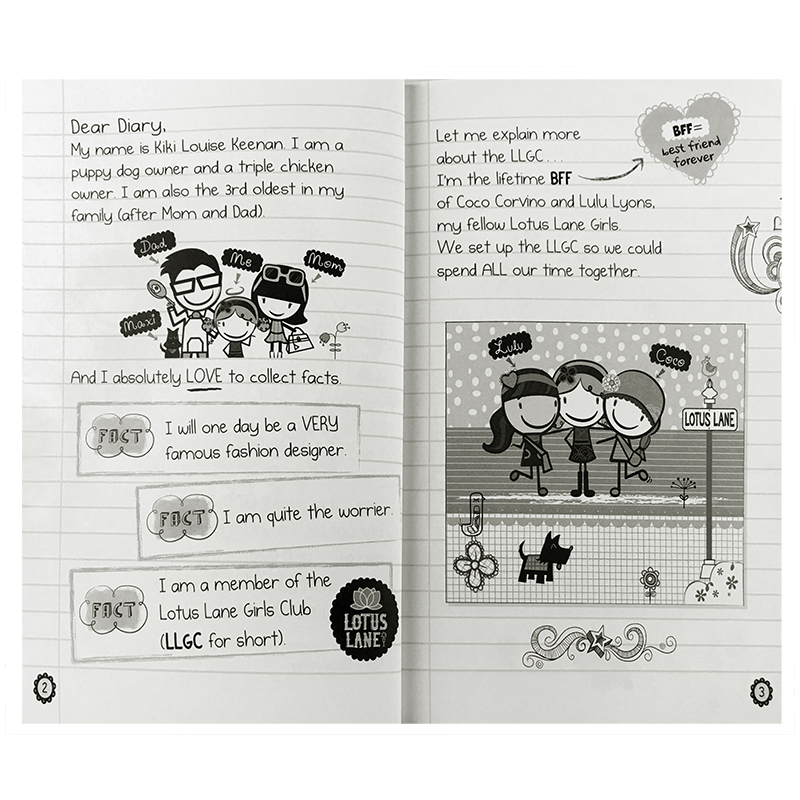 Dear Diary,
My name is Kiki Louise Keenan. I am a
puppy dog owner and a triple chicken
owner. I am also the 3rd oldest in my
family (after Mom and Dad).
Dad
Me
Mom
Maxi
And I absolutely LOVE to collect facts.
FACT
I will one day be a VERY
famous fashion designer.
FACT
I am quite the worrier.
FACT
I am a member of the
Lotus Lane Girls Club
(LLGC for short).
LOTUS
LANE
2
Let me explain more
about the LLGC...
I'm the lifetime BFF
of Coco Corvino and Lulu Lyons,
my fellow Lotus Lane Girls.
We set up the LLGC so we could
spend ALL our time together.
BFF=
best friend
forever
Lulu
Coco
LOTUS LANE
3